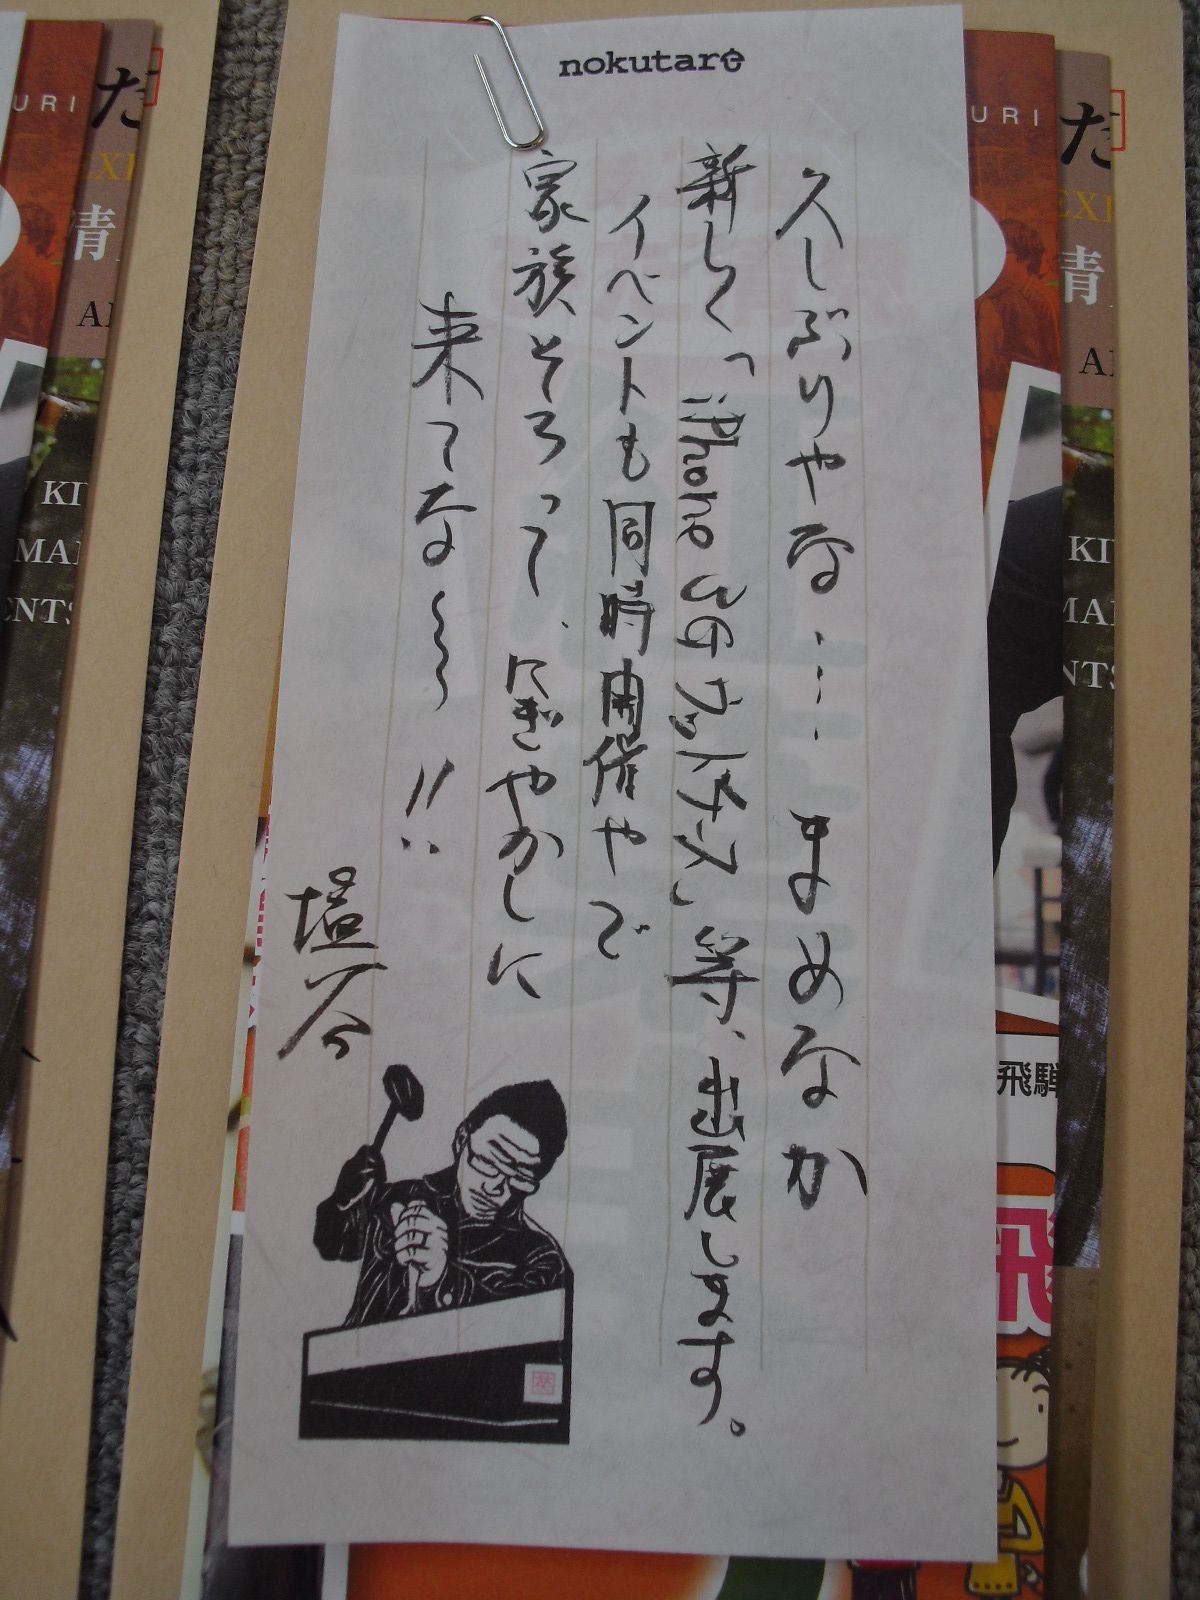 nokutare
久しぶりやな… まめなか
新しく「iPhone 3Gウッドケース」等、出展します。
イベントも同時開催やで
家族そろって、にぎやかしに
来てな〜〜!!
塩谷
URI
た
EXI
清
AI
KI
MAI
ENTS
URI
た
EXI
清
AI
KI
MAI
NTS
飛騨
飛